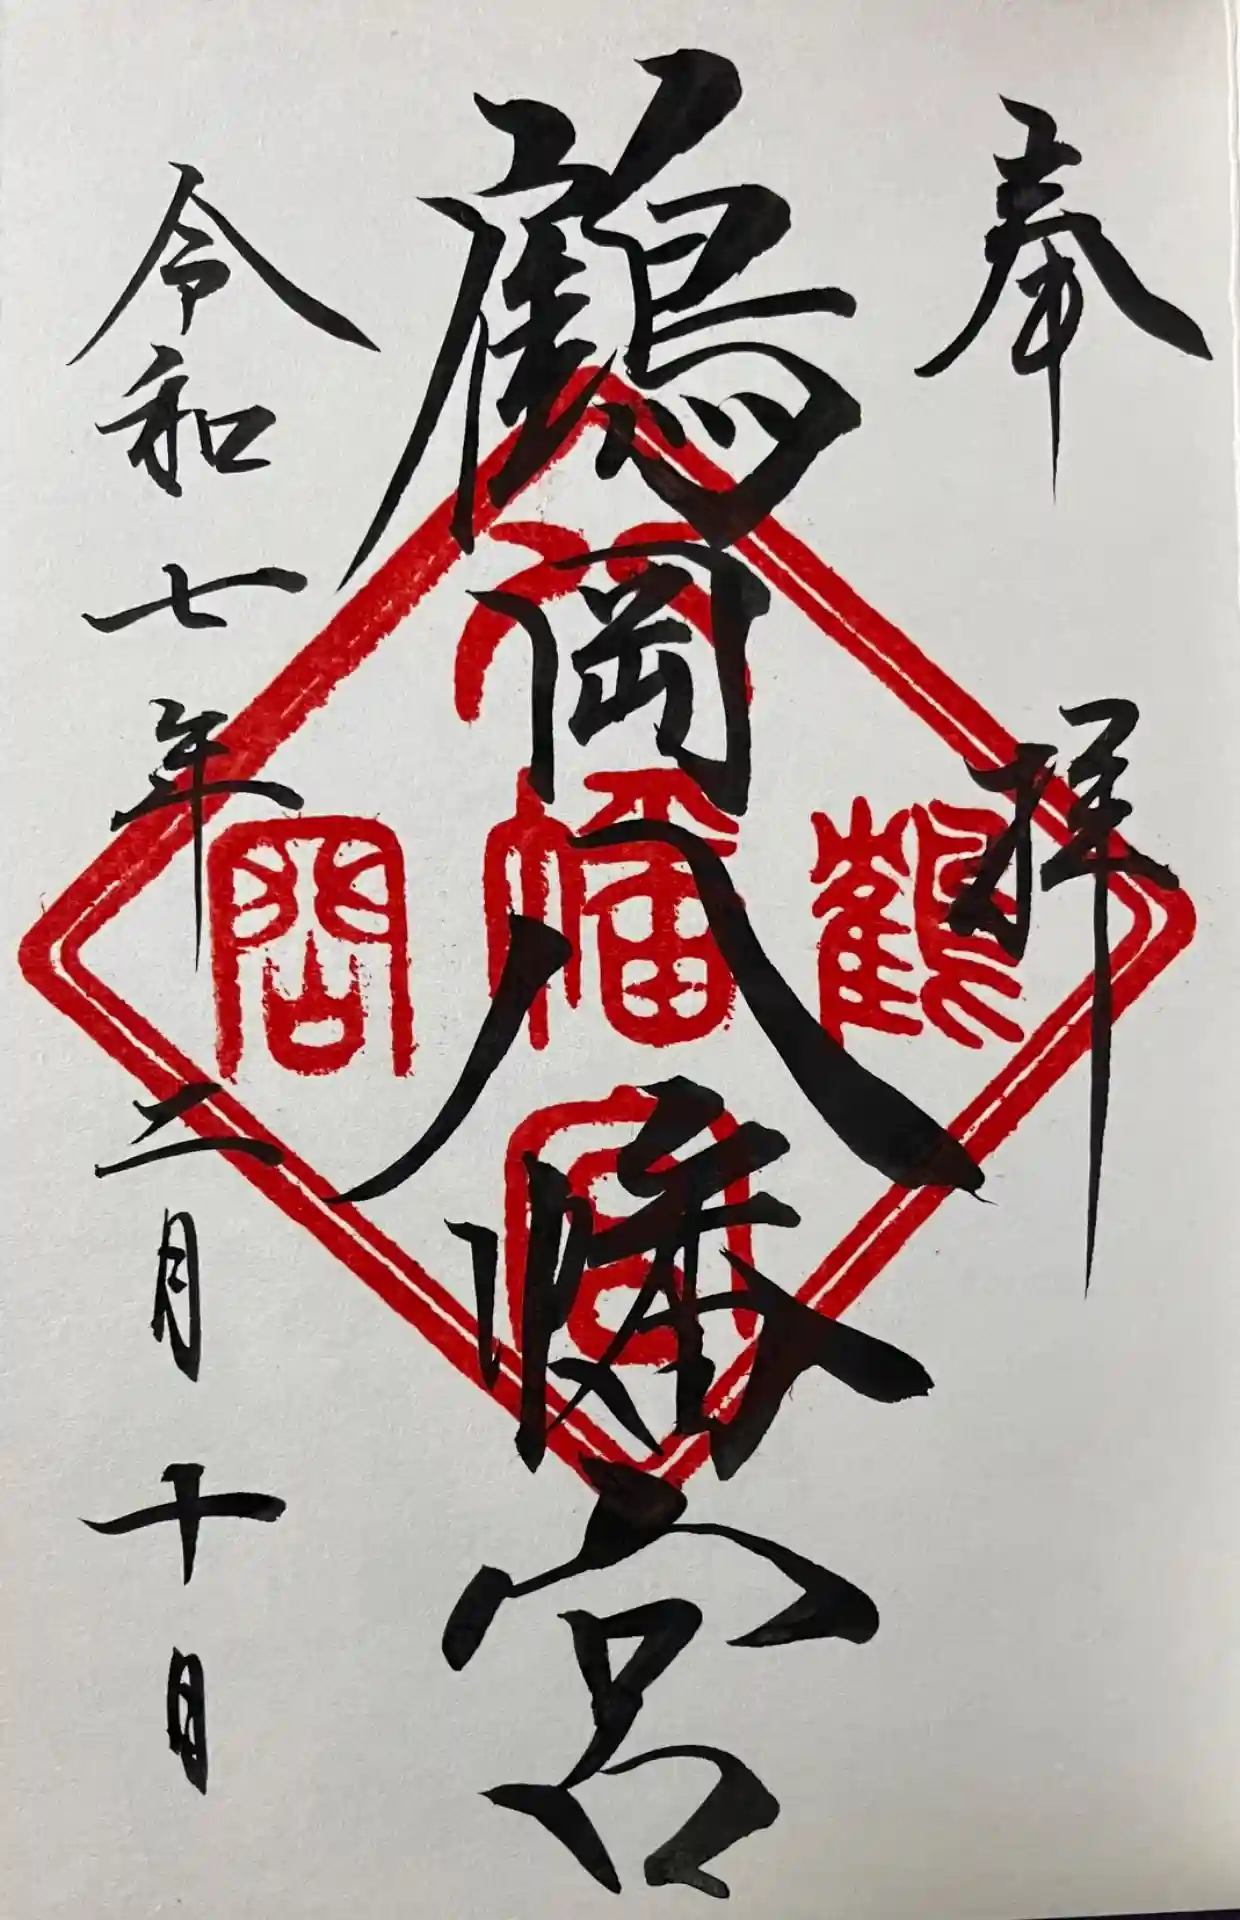 奉拝
鶴岡八幡宮
八
鶴幡岡
宮
令和七年二月十日